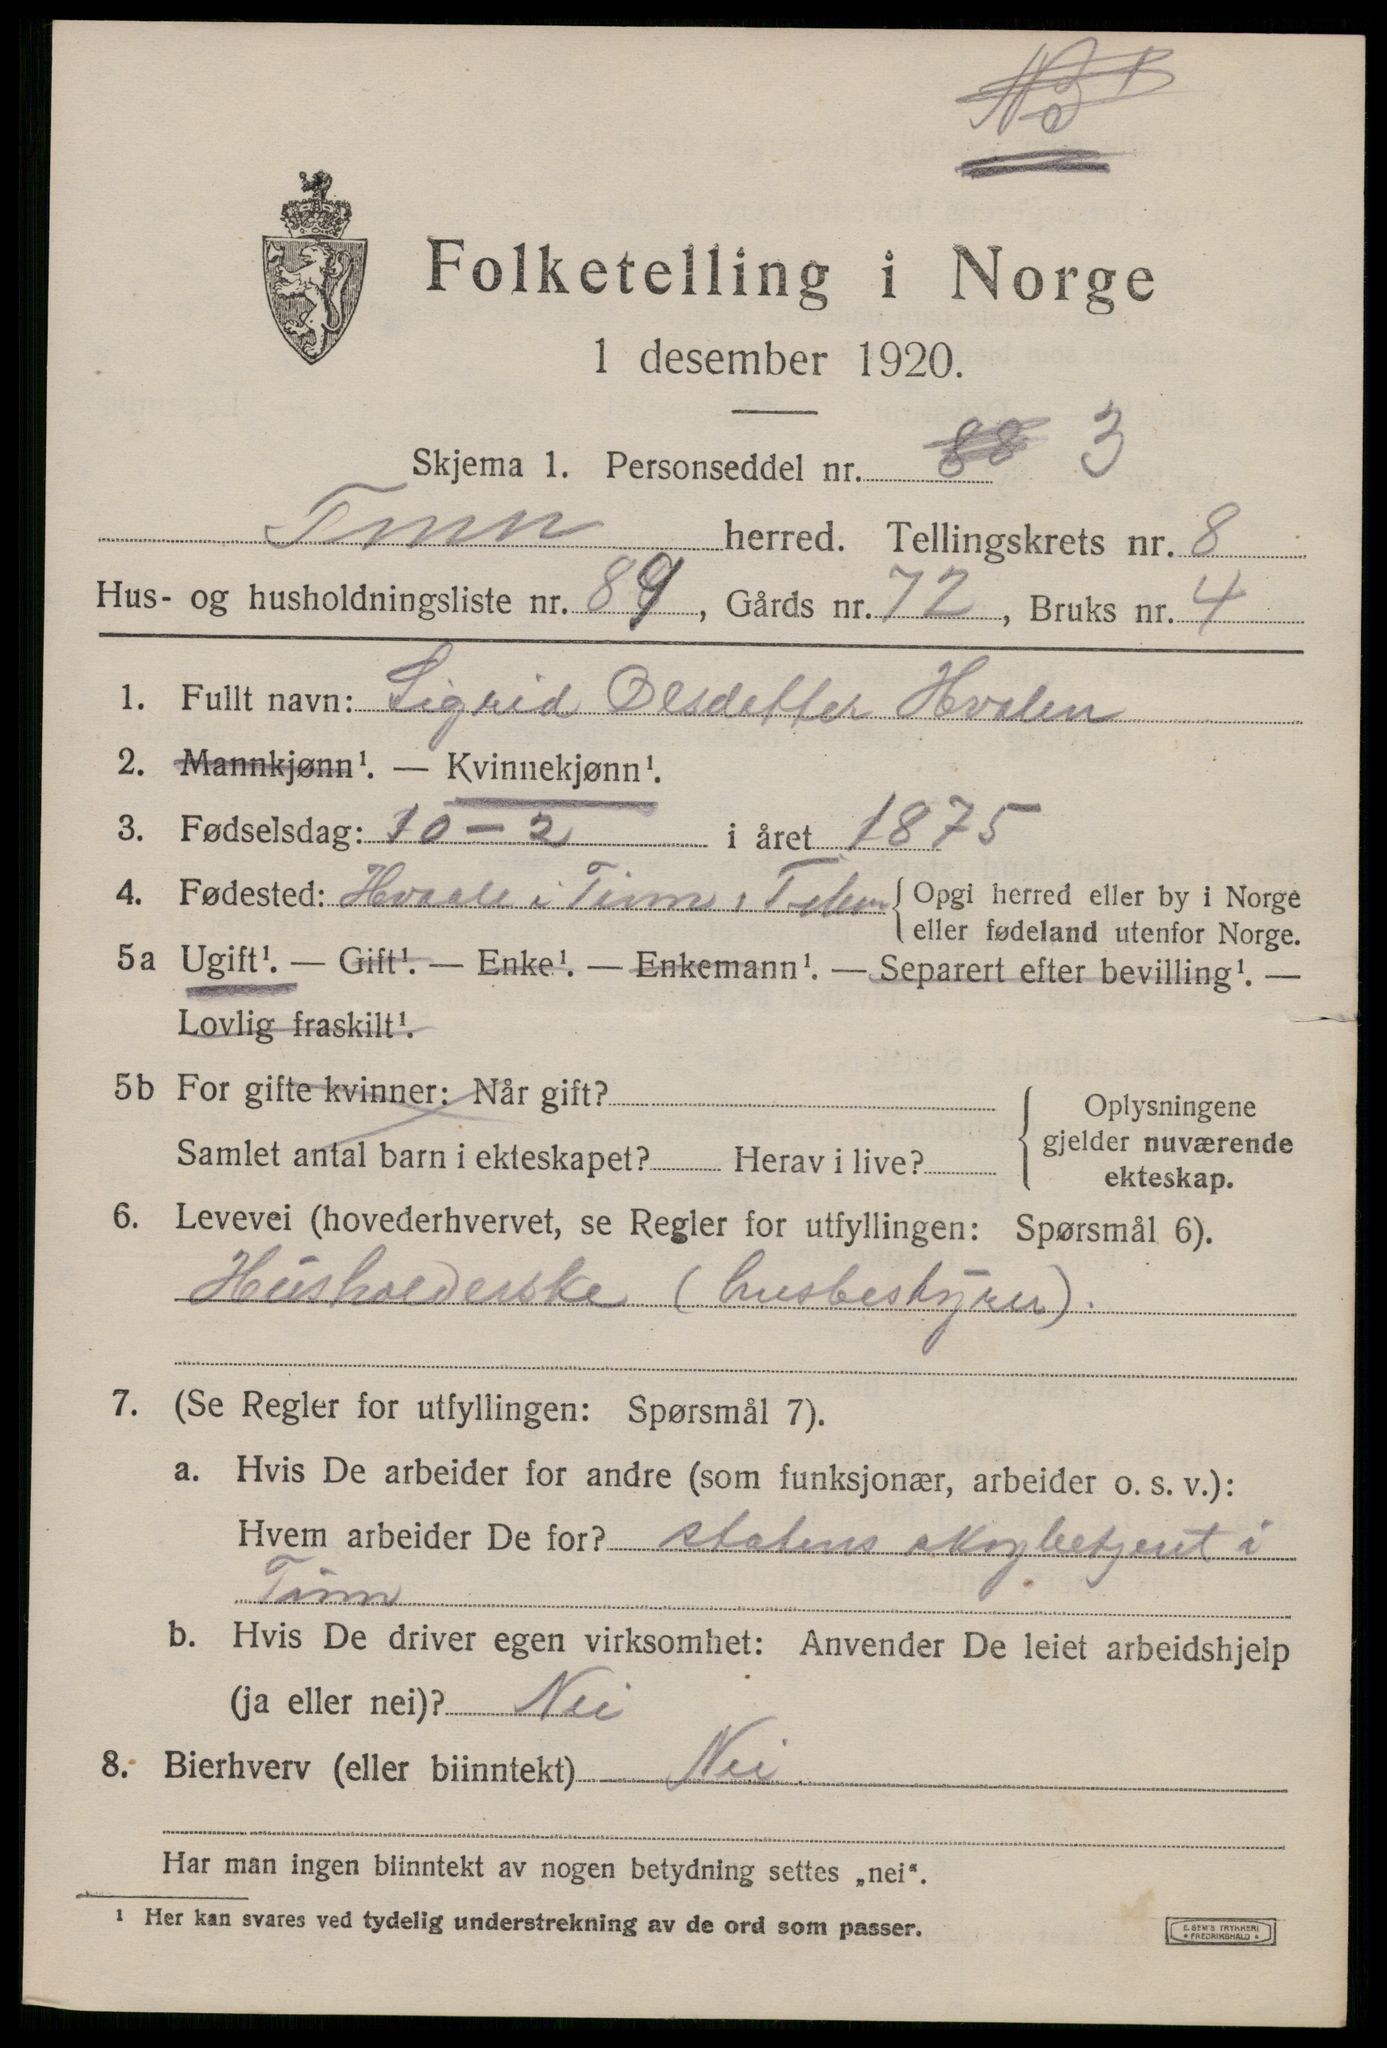 NB
Folketelling i Norge
1 desember 1920.
Skjema 1. Personseddel nr. 88 3
Tinn herred. Tellingskrets nr. 8
Hus- og husholdningsliste nr. 89, Gårds nr. 72, Bruks nr. 4
1. Fullt navn: Sigrid Olsdetter Hvalen
2. Mannkjønn¹. — Kvinnekjønn¹.
3. Fødselsdag: 10-2 i året 1875
4. Fødested: Hvaale i Tinn, Telem { Opgi herred eller by i Norge
eller fødeland utenfor Norge.
5a Ugift¹. — Gift¹. — Enke¹. — Enkemann¹. — Separert efter bevilling¹. —
Lovlig fraskilt¹.
5b For gifte kvinner: Når gift?
Samlet antal barn i ekteskapet? Herav i live?
Oplysningene
gjelder nuværende
ekteskap.
6. Levevei (hovederhvervet, se Regler for utfyllingen: Spørsmål 6).
Husholderske (husbestyrer).
7. (Se Regler for utfyllingen: Spørsmål 7).
a. Hvis De arbeider for andre (som funksjonær, arbeider o. s. v.):
Hvem arbeider De for? statens skogbetjent i
Tinn
b. Hvis De driver egen virksomhet: Anvender De leiet arbeidshjelp
(ja eller nei)? Nei
8. Bierhverv (eller biinntekt) Nei.
Har man ingen biinntekt av nogen betydning settes „nei".
¹ Her kan svares ved tydelig understrekning av de ord som passer.
E. SEM'S TRYKKERI
FREDRIKSHALD